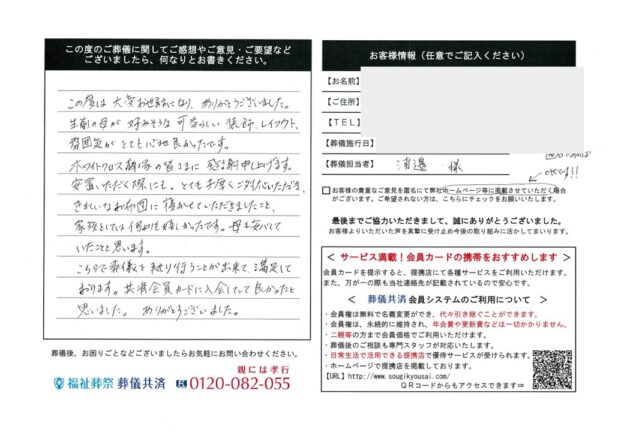 この度のご葬儀に関してご感想やご意見・ご要望など
ございましたら、何なりとお書きください。
この度は 大変お世話になり、ありがとうございました。
生前の母が 好みそうな 可愛らしい 装飾、レイアウト、
雰囲気が とても心地良かったです。
ホワイトクロス 飯塚の皆さまに 感謝申し上げます。
安置いただく際にも、とても手厚くご対応いただき、
きれいなお布団に 寝かせていただきましたこと、
家族としては何よりも嬉しかったです。母も安心して
いたことと思います。
こちらで葬儀を執り行うことが出来て、満足して
おります。共済会員カードに入会していて良かったと
思いました。 ありがとうございました。
葬儀後、お困りごとなどございましたらお気軽にお問い合わせください。
親には孝行
福祉葬祭 葬儀共済 0120-082-055
お客様情報（任意でご記入ください）
【お名前】
【ご住所】
【ＴＥＬ】
【葬儀施行日】
【葬儀担当者】 渡邉 様
OKです!!
お客様の貴重なご意見を匿名にて弊社ホームページ等に掲載させていただく場合
がございます。ご希望されない方は、こちらにチェックをお願いいたします。
最後までご協力いただきまして、誠にありがとうございました。
お客様よりいただいた声を真摯に受け止め今後の取り組みに活かしてまいります。
＜ サービス満載！会員カードの携帯をおすすめします ＞
会員カードを提示すると、提携店にて各種サービスをご利用いただけます。
また、万が一の際も当社連絡先が記載されているので安心です。
＜ 葬儀共済 会員システムのご利用について ＞
・会員権は無料で名義変更ができ、代々引き継ぐことができます。
・会員権は、永続的に維持され、年会費や更新費などは一切かかりません。
・二親等の方まで会員価格でご利用いただけます。
・葬儀後のご相談も専門スタッフが対応いたします。
・日常生活で活用できる提携店で優待サービスが受けられます。
・ホームページで提携店を掲載しております。
【URL】http://www.sougikyousai.com/
ＱＲコードからもアクセスできます⇒